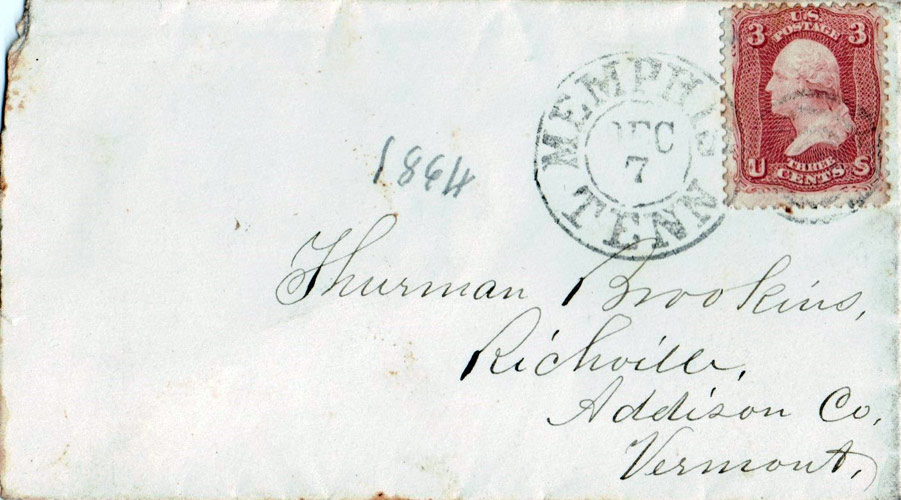 3 U.S. 3
POSTAGE
THREE
U CENTS S
MEMPHIS
DEC
7
TENN
1864
Thurman Brookins,
Richville,
Addison Co.
Vermont,